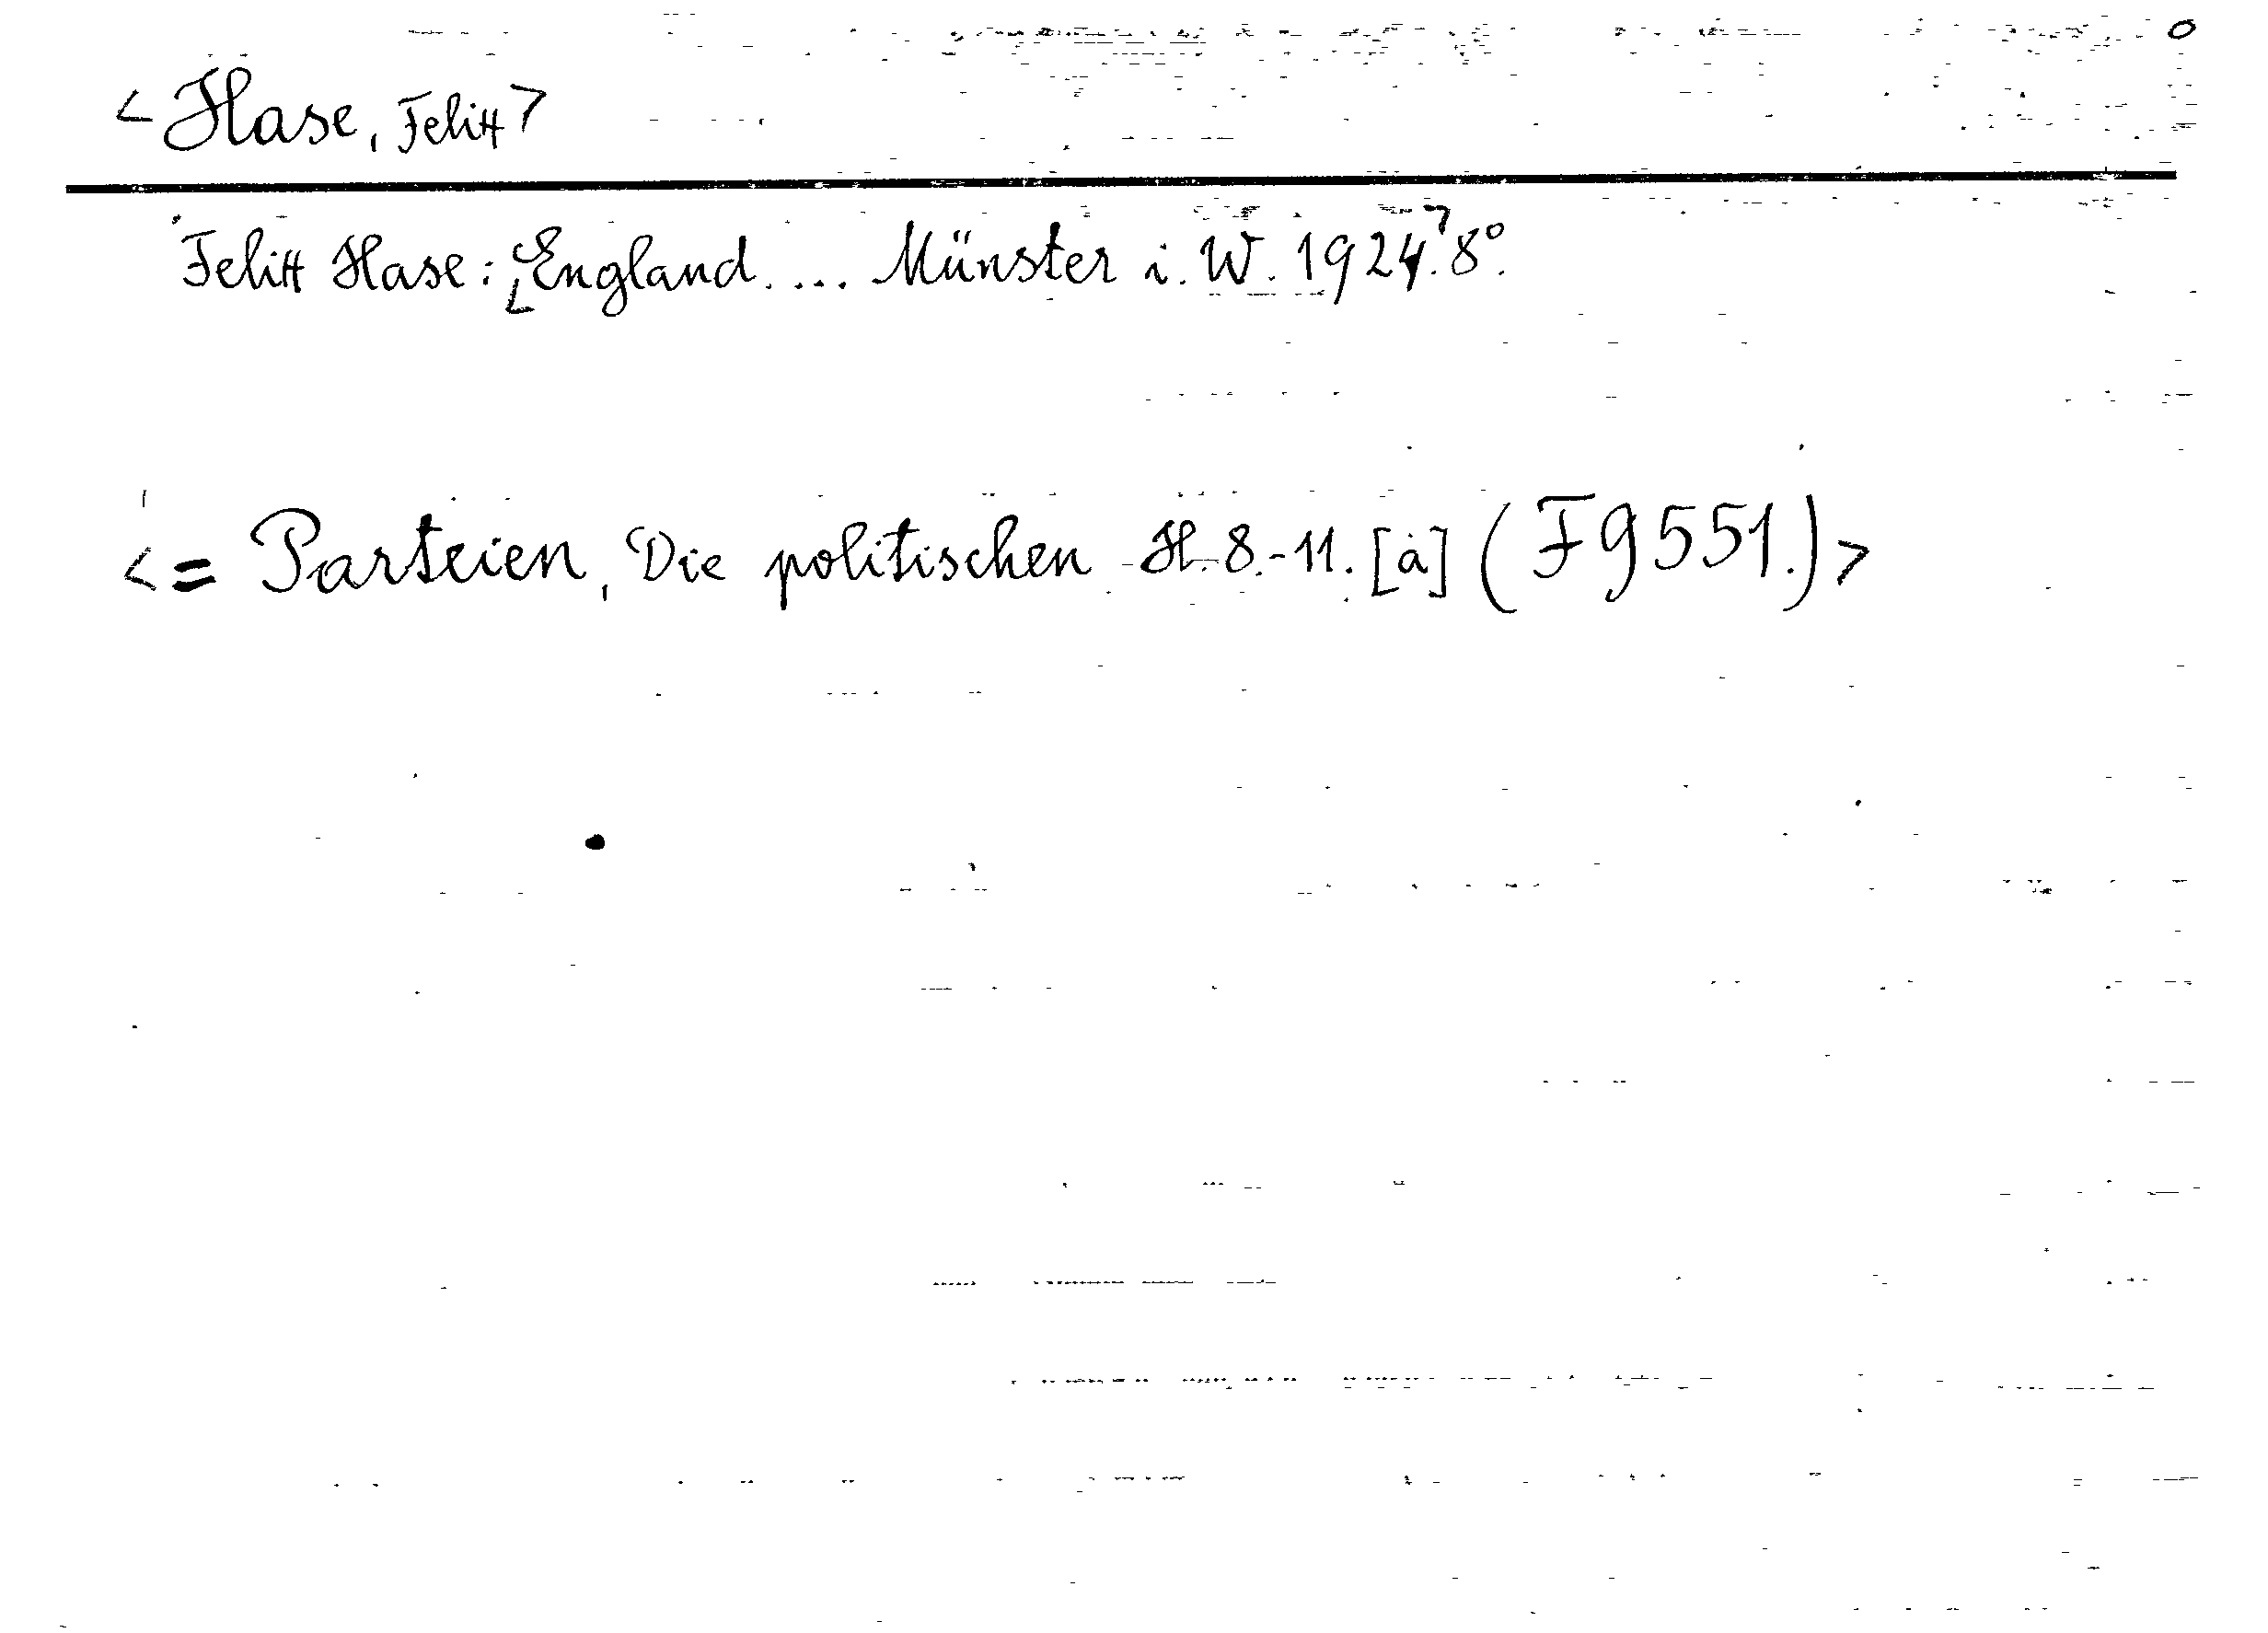 <Hase, Felix>
Felix Hase: ⌊England. ... Münster i. W. 1924.⌉ 8°.
<= Parteien, Die politischen H. 8.-11. [à] (F 9551.)>